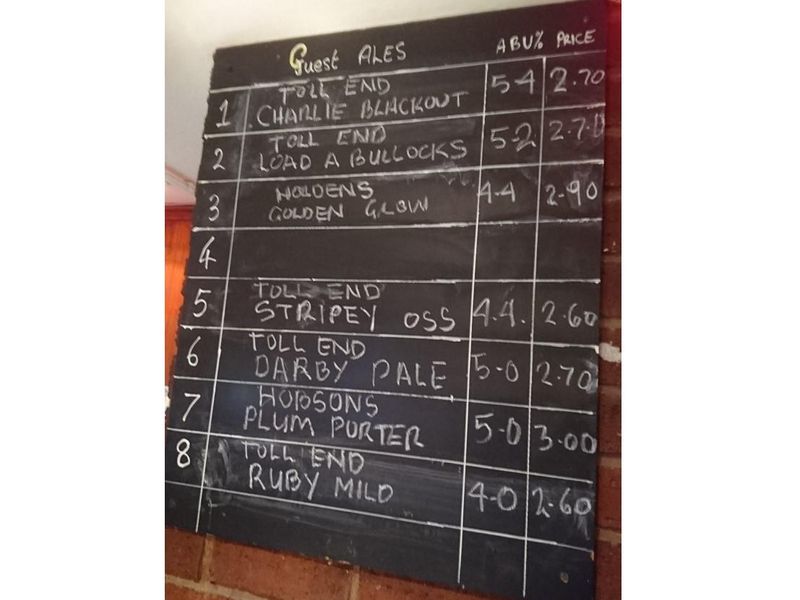 Guest ALES ABV% PRICE
1 TOLL END
CHARLIE BLACKOUT 5-4 2.70
2 TOLL END
LOAD A BULLOCKS 5-2 2.70
3 HOLDENS
GOLDEN GLOW 4-4 2-90
4
5 TOLL END
STRIPEY OSS 4.4. 2.60
6 TOLL END
DARBY PALE 5-0 2.70
7 HOBSONS
PLUM PORTER 5-0 3.00
8 TOLL END
RUBY MILD 4-0 2.60